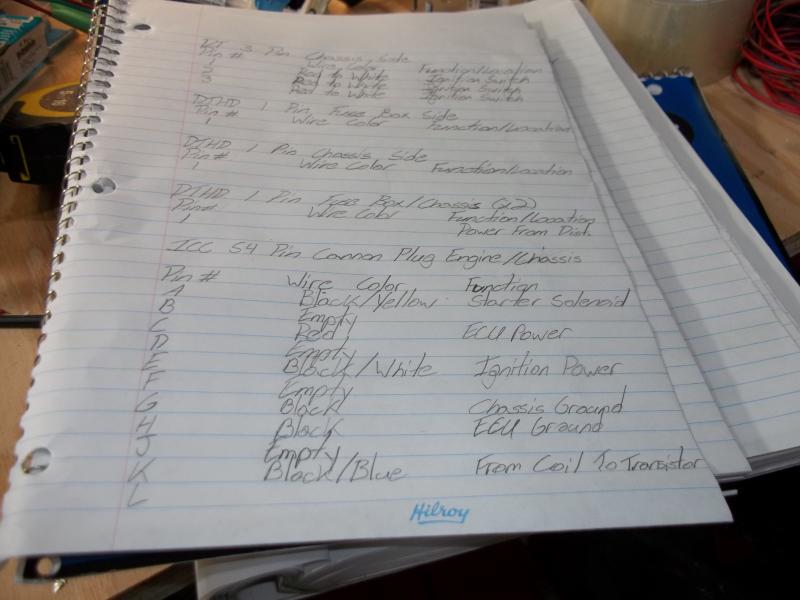 DT 3 Pin Chassis Side
Pin # Wire Color Function/Location
1 Red to White Ignition Switch
2 Red to White Ignition Switch
3 Red to White Ignition Switch
DTHD 1 Pin Fuse Box Side
Pin # Wire Color Function/Location
DTHD 1 Pin Chassis Side
Pin # Wire Color Function/Location
1
DTHD 1 Pin Fuse Box/Chassis (x2)
Pin# Wire Color Function/Location
1 Power From Dist.
ICC 54 Pin Cannon Plug Engine/Chassis
Pin # Wire Color Function
A Black/Yellow Starter Solenoid
B Empty
C Red ECU Power
D Empty
E Black/White Ignition Power
F Empty
G Black Chassis Ground
H Black ECU Ground
J Empty
K Black/Blue From Coil To Transistor
L
Hilroy